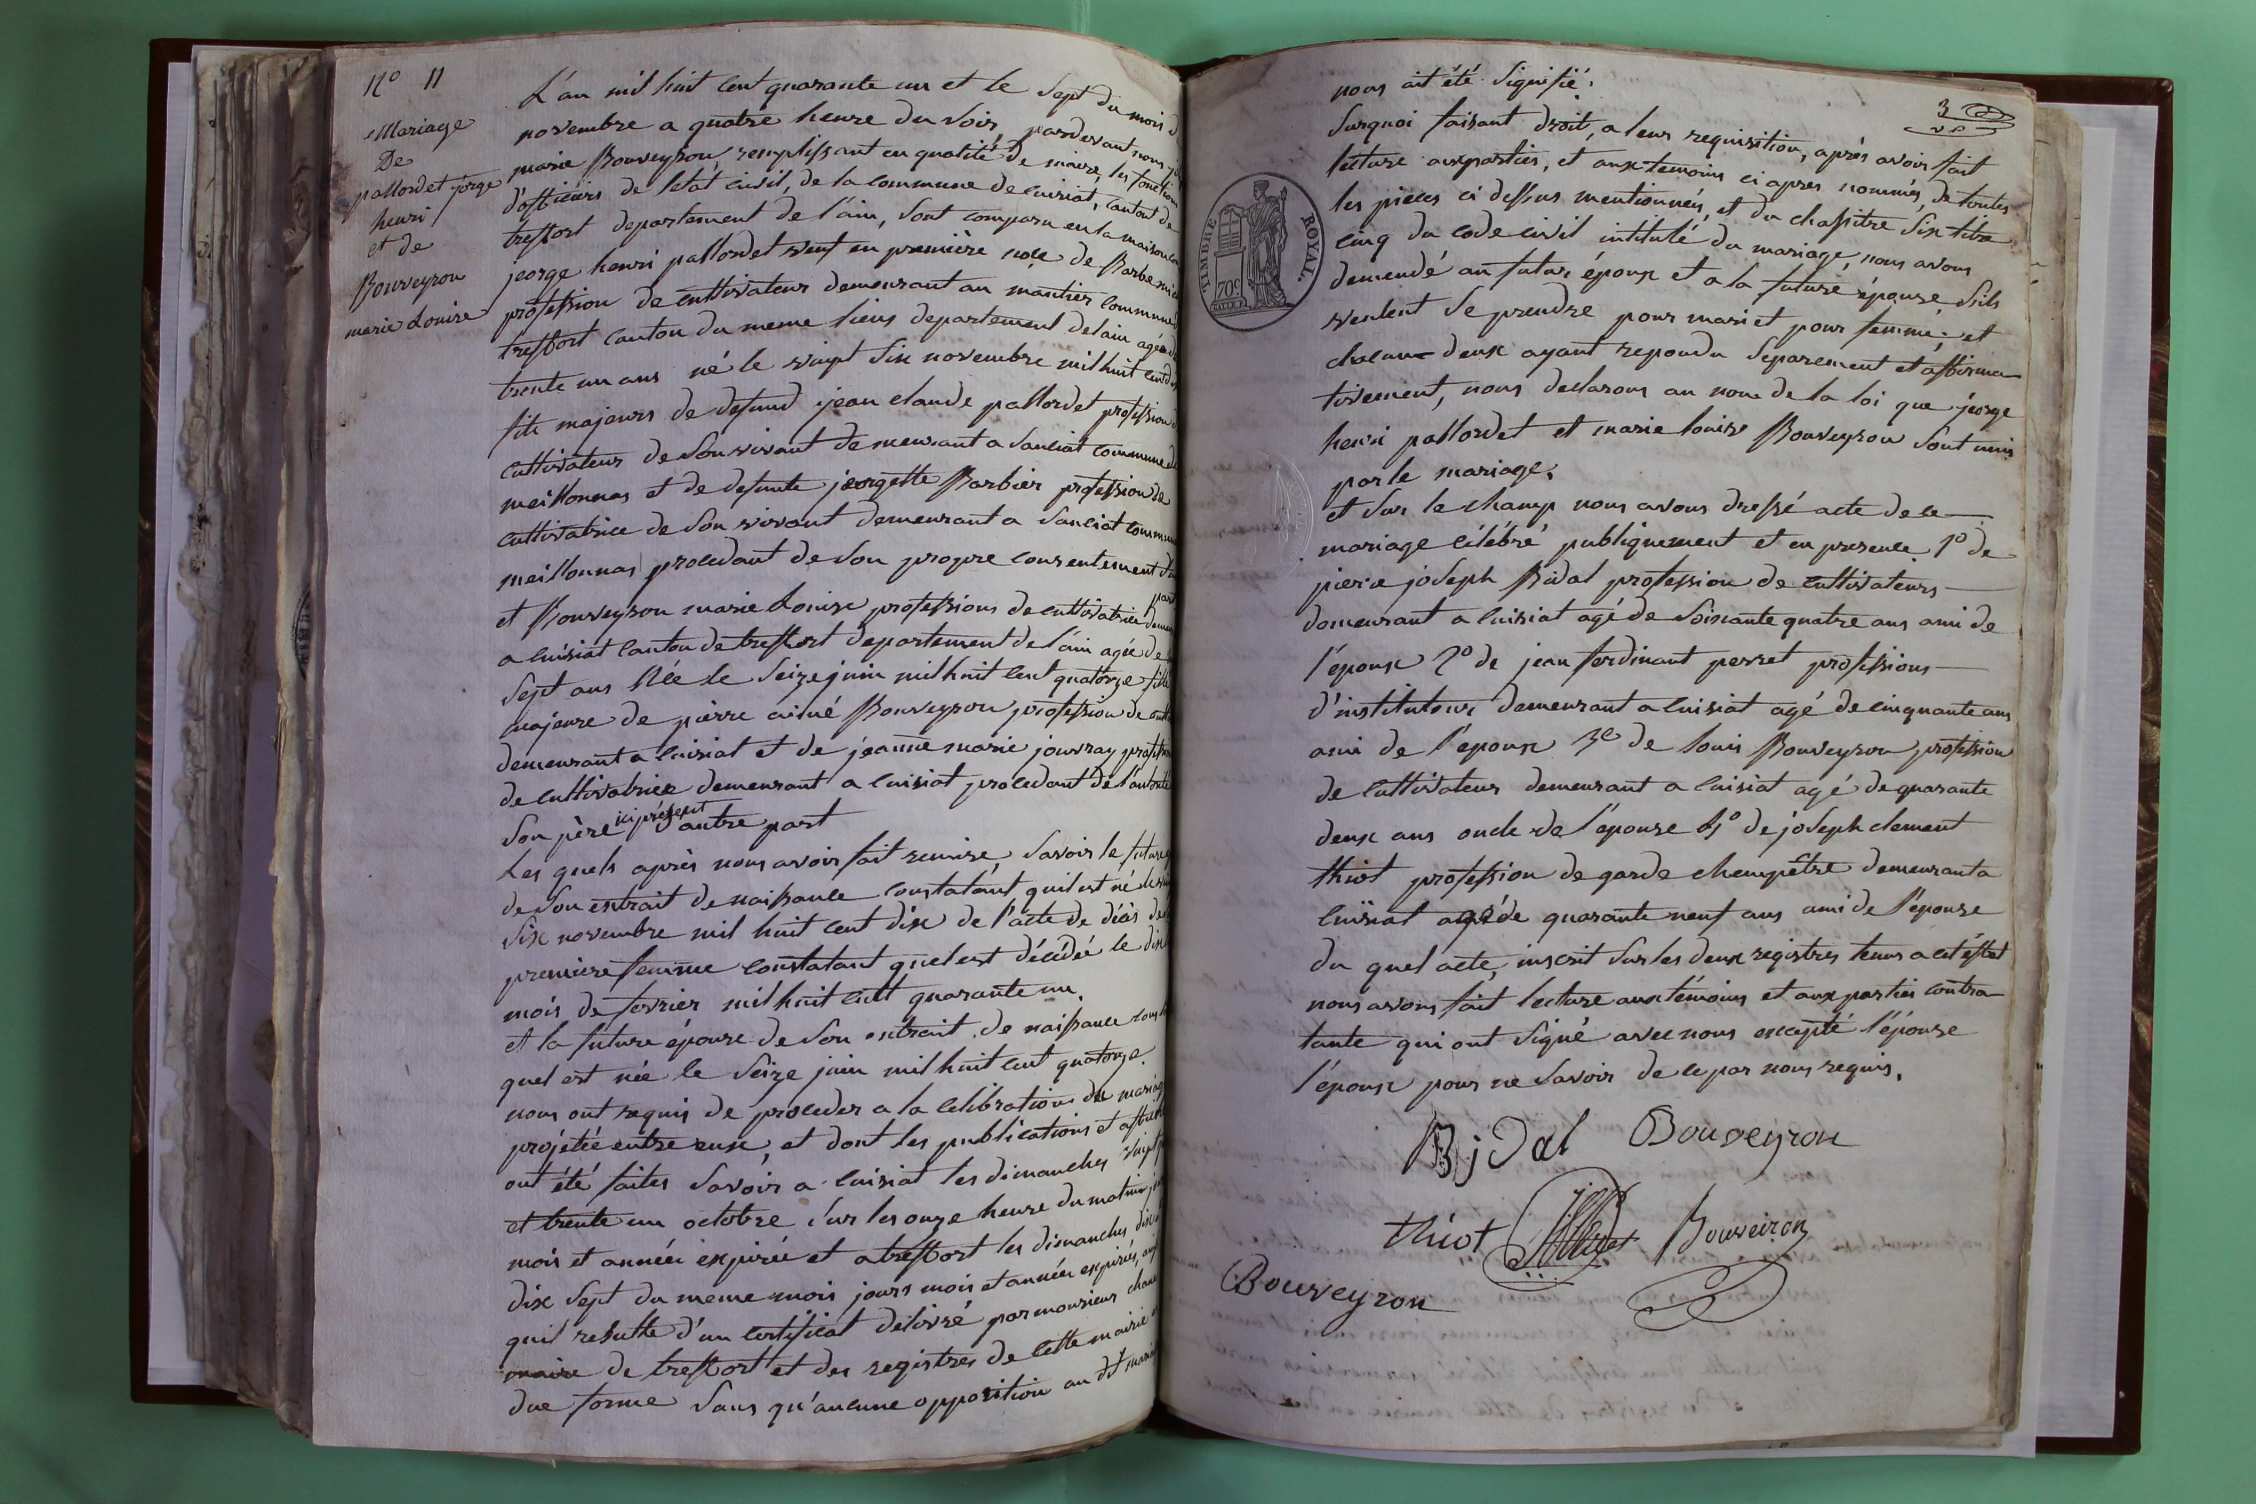 N° 11
Mariage
De
pallordet jorge
henri
et de
Bouveyron
marie Louise
L'an mil huit cent quarante un et le Sept du mois d
novembre a quatre heure du Soir, pardevant nous
marie Bouveyron, remplissant en qualité de maire, les fonction
d'officiers de letat civil, de la commune de cuisiat, canton de
treffort departement de l'ain, Sont comparu en la maison
jeorge henri pallordet veuf en première noce de Barbe
profession de cultivateur demeurant au moutier commune d
treffort canton du meme lieus departement delain agé de
trente un ans né le vingt Six novembre mil huit cent dix
fils majeurs de defund jean claude pallordet profession d
cultivateur de Son vivant demeurant a Sanciat commune de
meillonnas et de defunte jeorgette Barbier profession de
cultivatrice de Son vivant demeurant a Sanciat commune
meillonnas procedant de Son propre consentement d'une
part
et Bouveyron marie Louise professions de cultivatrice demeu
a cuisiat canton de treffort departement de l'ain agée de
Sept ans Née le Seize juin mil huit cent quatorze fille
majeure de pierre aimé Bouveyron profession de culti
demeurant a cuisiat et de jeanne marie jouvray profession
de cultivatrice demeurant a cuisiat procedant de l'autorité
Son père ici présent d'autre part
Les quels après nous avoir fait remise, Savoir le future
de Son extrait de naissance constatant quil est né le vin
Six novembre mil huit cent dix de l'acte de décès de
premiere femme constatant quel est décédée le dix
mois de fevrier mil huit cent quarante un.
et la future épouse de Son extrait de naissance
quel est née le Seize juin mil huit cent quatorze.
nous ont requis de proceder a la célébration du mariag
projetée entre eux, et dont les publications et affiche
ont été faites Savoir a cuisiat les dimanches vingt
et trente un octobre Sur les onze heure du matin
mois et année expirée et a treffort les dimanches, dix
dix Sept du meme mois jours mois et année expirés,
quil resulte d'un certificat délivré par monsieur
maire de treffort et des registres de cette mairie
due forme Sans qu'aucune opposition au dt mariage
nous ait été Signifié.
3
Surquoi faisant droit, a leur requisition, après avoir fait
lecture auxparties, et aux temoins ci apres nommés, de toutes
les pieces ci dessus mentionnées, et du chapitre Six titre
cinq du code civil intitulé du mariage, nous avons
demendé au futur époux et a la future épouse, Sils
veulent Se prendre pour mari et pour femme; et
chacun deux ayant repondu Separement et affirma-
tivement, nous declarons au nom de la loi que jeorge
henri pallordet et marie louise Bouveyron Sont unis
par le mariage.
et Sur le champ nous avons dressé acte de ce
mariage célébré publiquement et en presence 1° de
pierre joseph Bidal profession de cultivateurs
demeurant a cuisiat agé de Soixante quatre ans ami de
l'époux 2° de jean ferdinant perret professions
d'instituteur demeurant a cuisiat agé de cinquante ans
ami de l'epoux 3e de louis Bouveyron profession
de cultivateur demeurant a cuisiat agé de quarante
deux ans oncle de l'épouse 4° de joseph clement
thiot profession de garde champêtre demeurant a
cuisiat agé de quarante neuf ans ami de l'épouse
du quel acte, inscrit Sur les deux registres tenus a cet éffet
nous avons fait lecture aux témoins et aux parties contra-
tante qui ont Signé avec nous excepté l'épouse
l'époux pour ne Savoir de ce par nous requis.
Bidal Bouveyron
thiot Bouveiron
Bouveyron
TIMBRE ROYAL.
70c